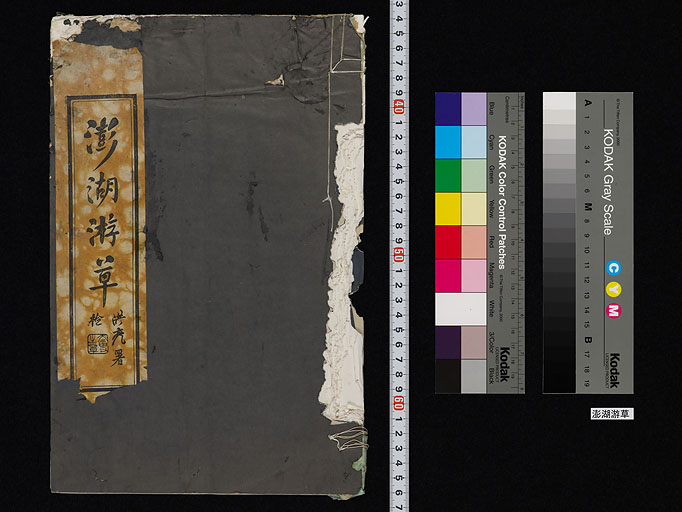 澎湖游草
KODAK Color Control Patches
Blue
Cyan
Green
Yellow
Red
Magenta
White
3/Color
Black
Kodak
KODAK Gray Scale
C Y M
Kodak
A 1 2 3 4 5 6 M 8 9 10 11 12 13 14 15 B 17 18 19
3 4 5 6 7 8 9 40 1 2 3 4 5 6 7 8 9 50 1 2 3 4 5 6 7 8 9 60 1 2 3 4 5 6 7
澎湖游草